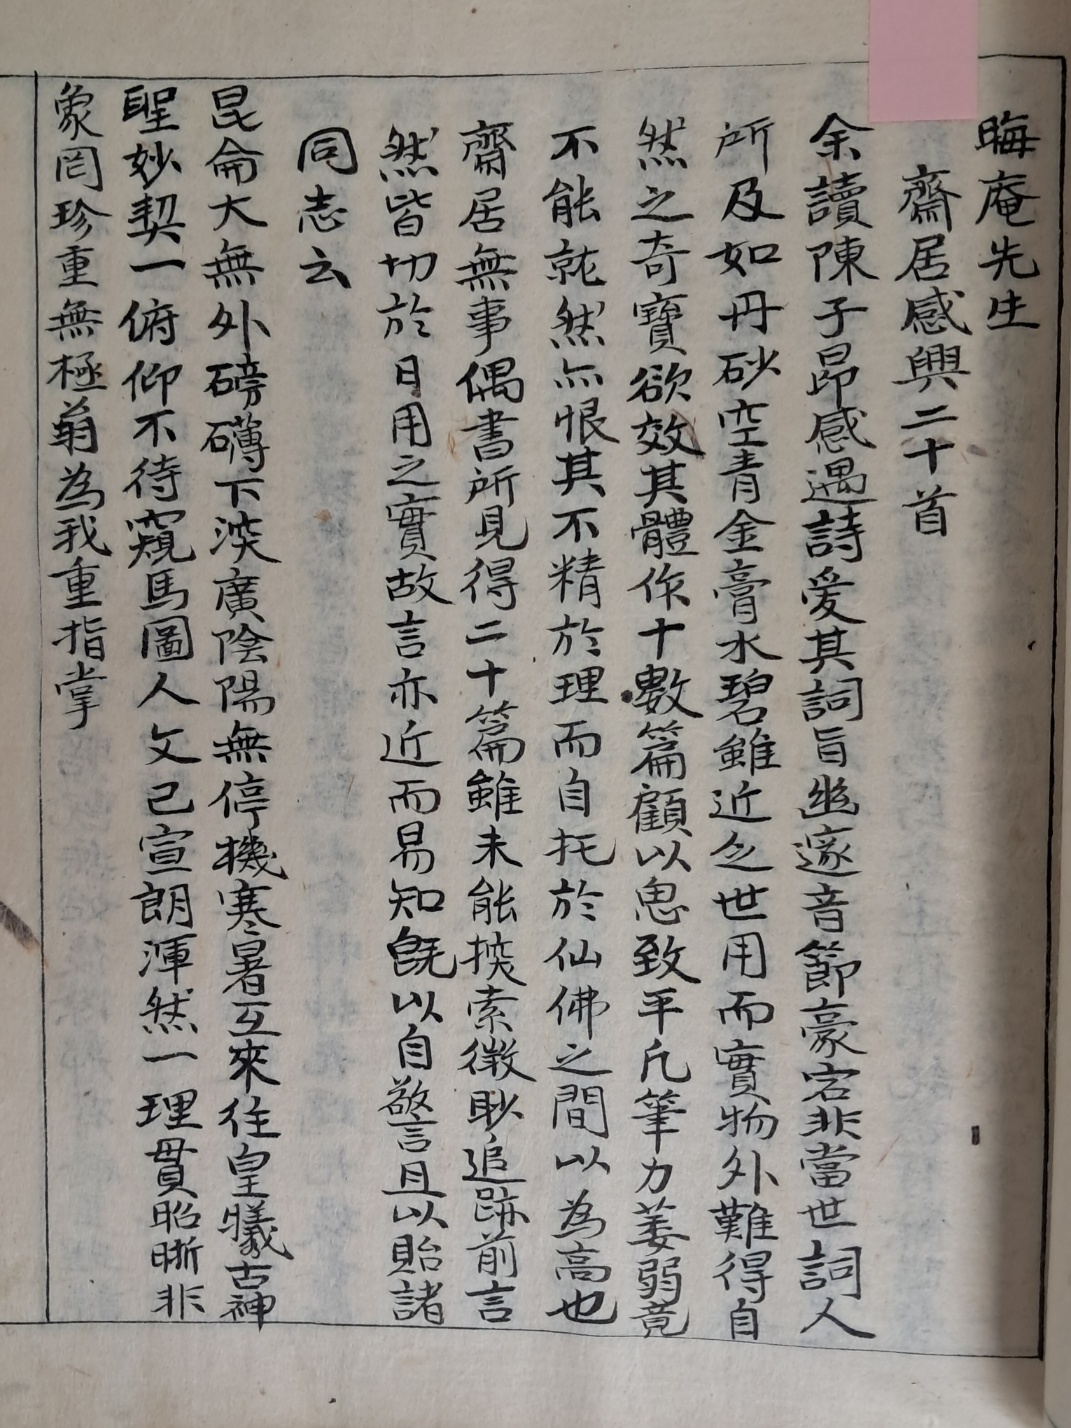 晦庵先生
齋居感興二十首
余讀陳子昂感遇詩愛其詞旨幽邃音節豪宕非當世詞人
所及如丹砂空青金膏水碧雖近乏世用而實物外難得自
然之奇寶欲效其體作十數篇顧以思致平凡筆力萎弱竟
不能就然亦恨其不精於理而自托於仙佛之間以為高也
齋居無事偶書所見得二十篇雖未能探索微眇追跡前言
然皆切於日用之實故言亦近而易知既以自警且以貽諸
同志云
昆侖大無外磅礴下深廣陰陽無停機寒暑互來往皇犧古神
聖妙契一俯仰不待窺馬圖人文已宣朗渾然一理貫昭晰非
象罔珍重無極翁為我重指掌